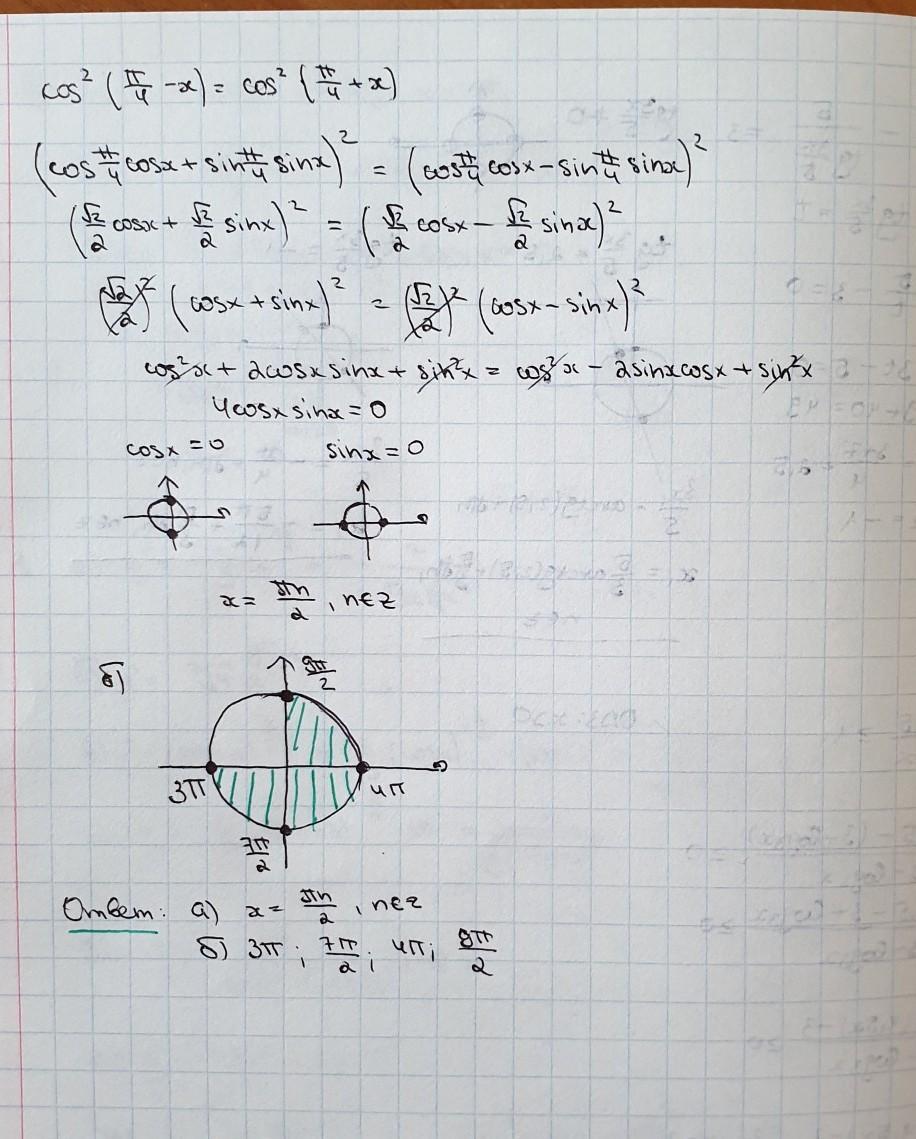 cos² (π/4 - x) = cos² (π/4 + x)
(cos π/4 cosx + sin π/4 sinx)² = (cos π/4 cosx - sin π/4 sinx)²
(√2/2 cosx + √2/2 sinx)² = (√2/2 cosx - √2/2 sinx)²
(√2/2)² (cosx + sinx)² = (√2/2)² (cosx - sinx)²
cos²x + 2cosx sinx + sin²x = cos²x - 2sinxcosx + sin²x
4cosx sinx = 0
cosx = 0 sinx = 0
x = πn/2, n∈Z
б)
9π/2
3π 4π
7π/2
Ответ: а) x = πn/2, n∈Z
б) 3π; 7π/2; 4π; 9π/2